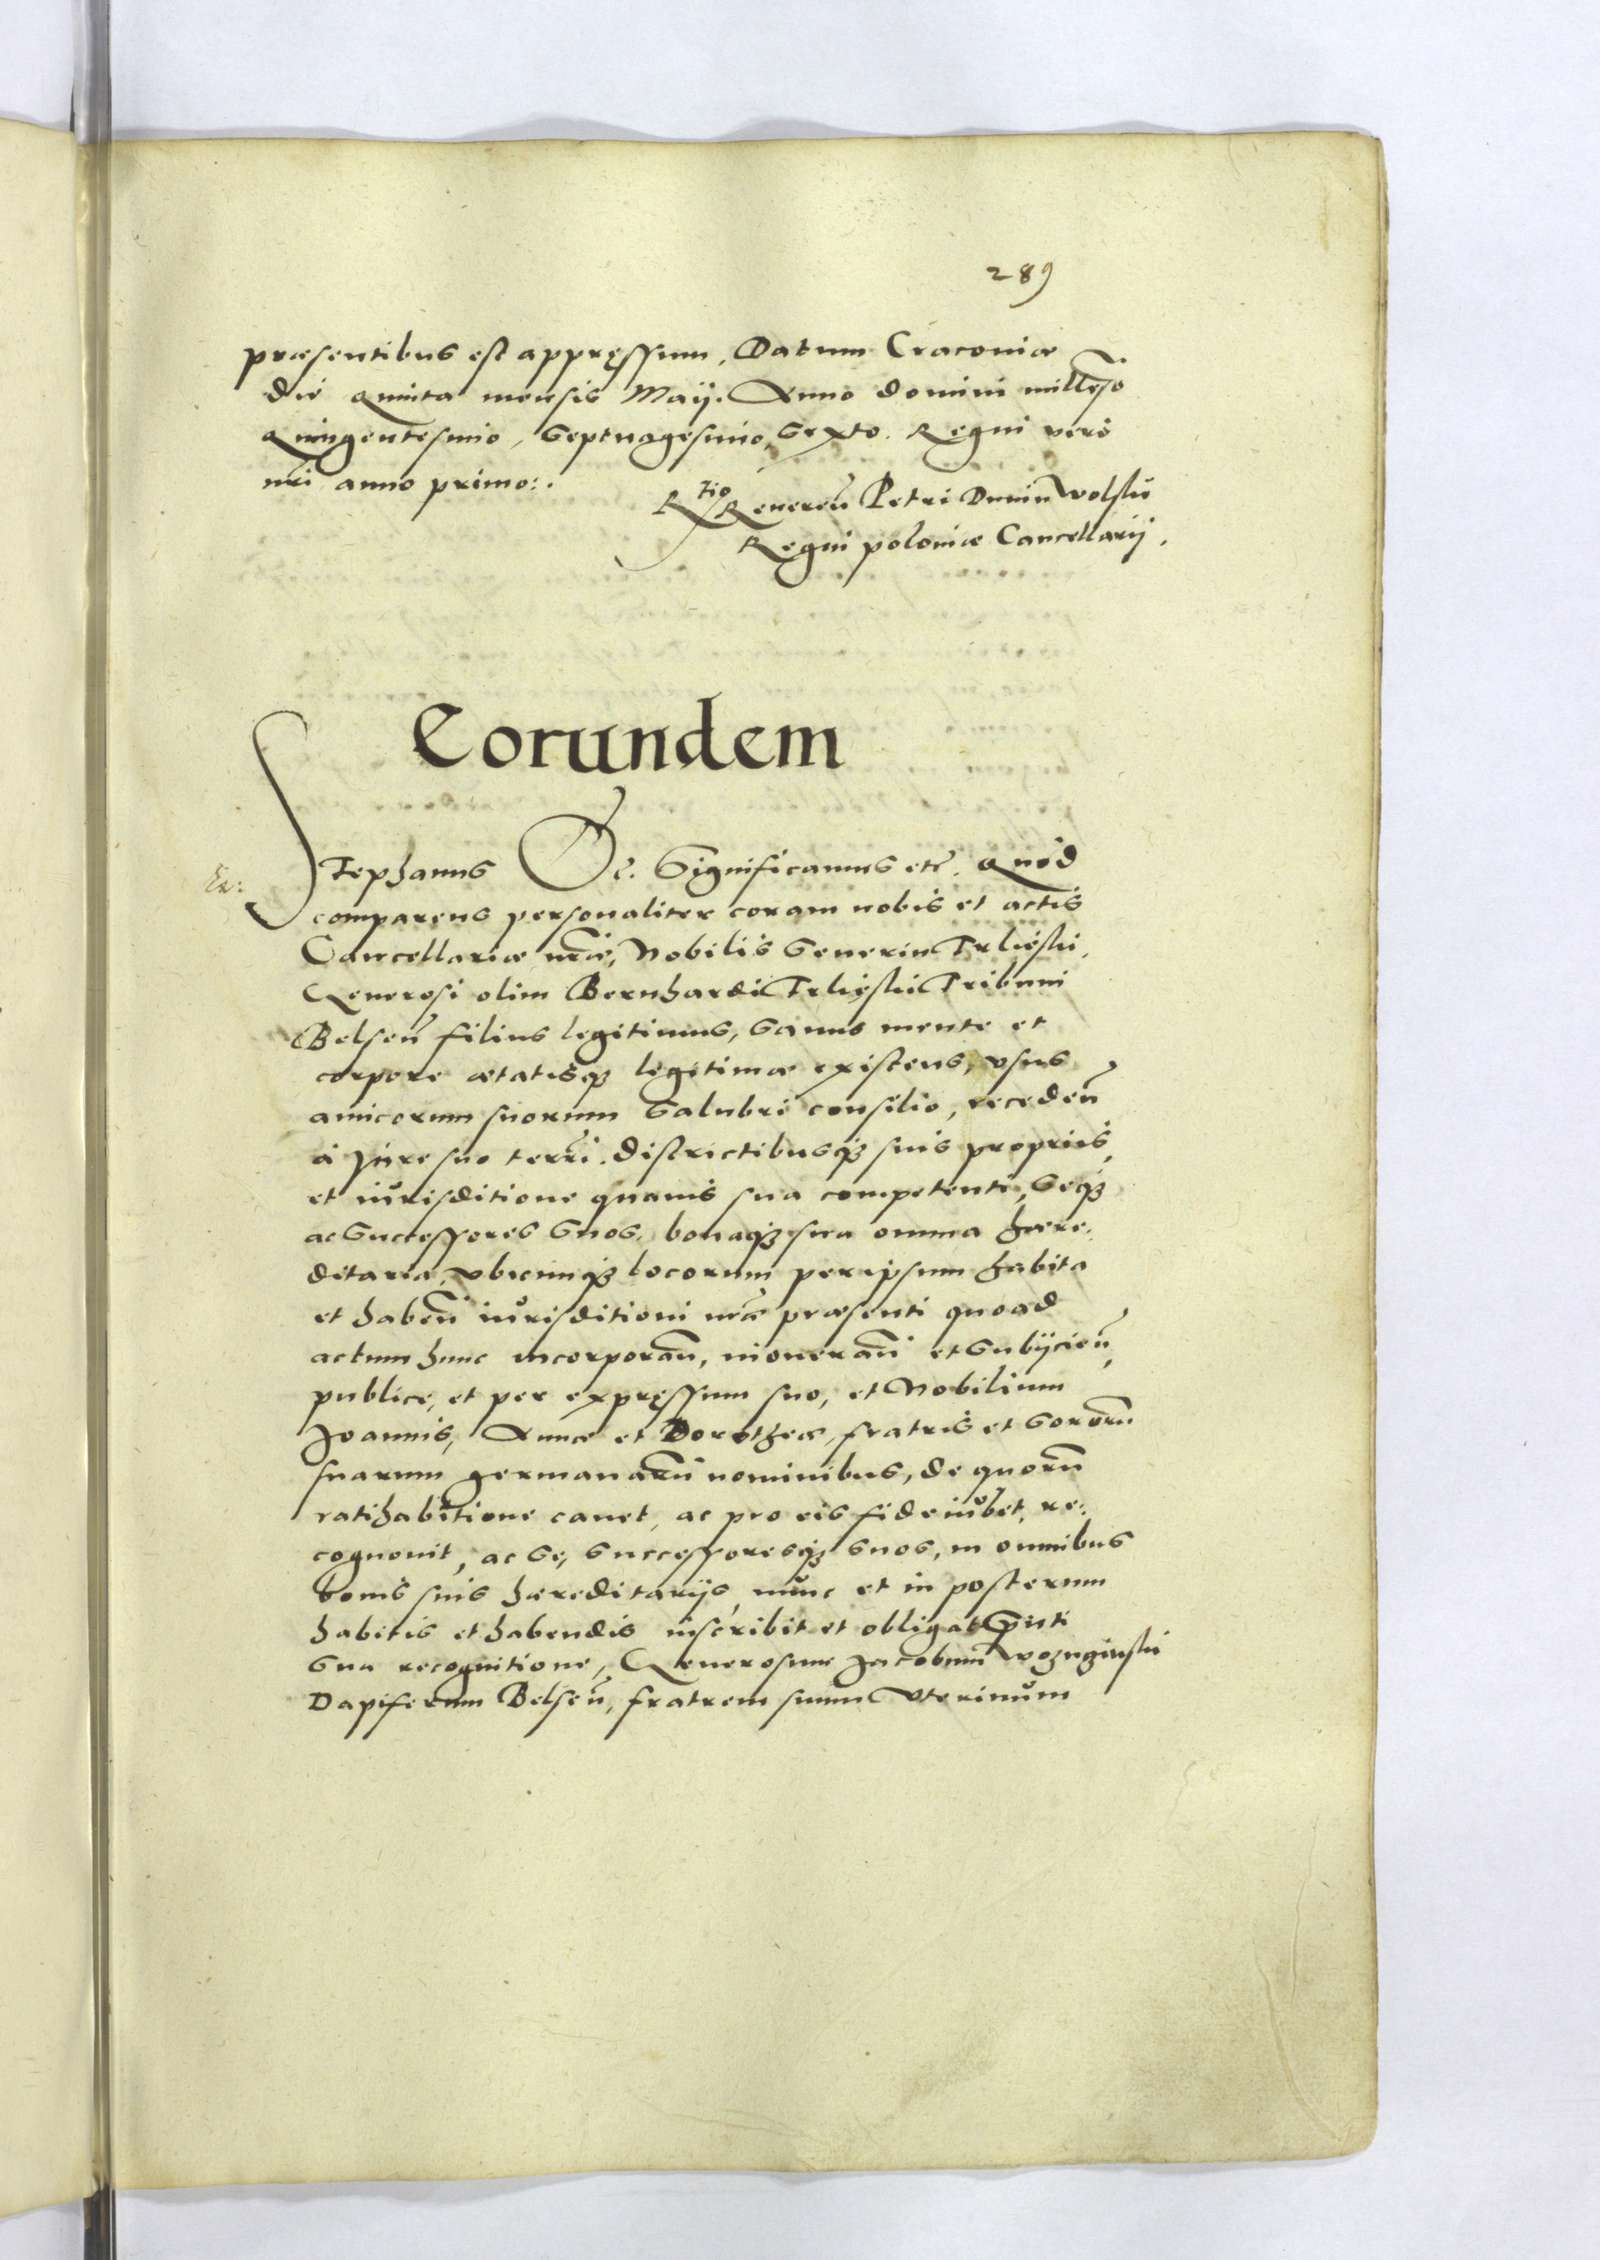 289
præsentibus est appręssum, Datum Cracoviæ
die Quinta mensis Maij. Anno domini milleso
Quingentesimo, Septuagesimo, Sexto. Regni vero
nri anno primo:.
Rtio Reveren Petri Dunin Wolski
Regni poloniæ Cancellarij.
Eorundem
Stephanus Significamus etc. Quod
comparens personaliter coram nobis et actis
Cancellariæ nræ, Nobilis Severin Irlięski,
Generosi olim Bernhardi Irlięski Tribuni
Belsen filius legitimus, sanus mente et
corpore ætatisq legitimæ existens, vsus
amicorum suorum salubri consilio, receden
à Jure suo terri. districtibusq suis proprijs
et iurisditione quavis sua competenti, seq
ac Successores suos, bonaq sua omnia hære:
ditaria, vbicunq locorum per ipsum habita
et haben iurisditioni nræ præsenti quoad
actum hunc incorporan, et subijcien
publice, et per expręssum suo, et Nobilium
Joannis, Annæ et Dorotheæ, fratris et sororu
suarum germanaru nominibus, de quoru
ratihabitione cavet, ac pro eis fideiubet, re:
cognovit, ac se, successoresq suos, in omnibus
bonis suis hæreditarijs, nunc et in posterum
habitis et habendis inscribit et obligat pnti
sua recognitione, Generosum Jacobum
Dapiferum Belsen, fratrem suum Vterinum